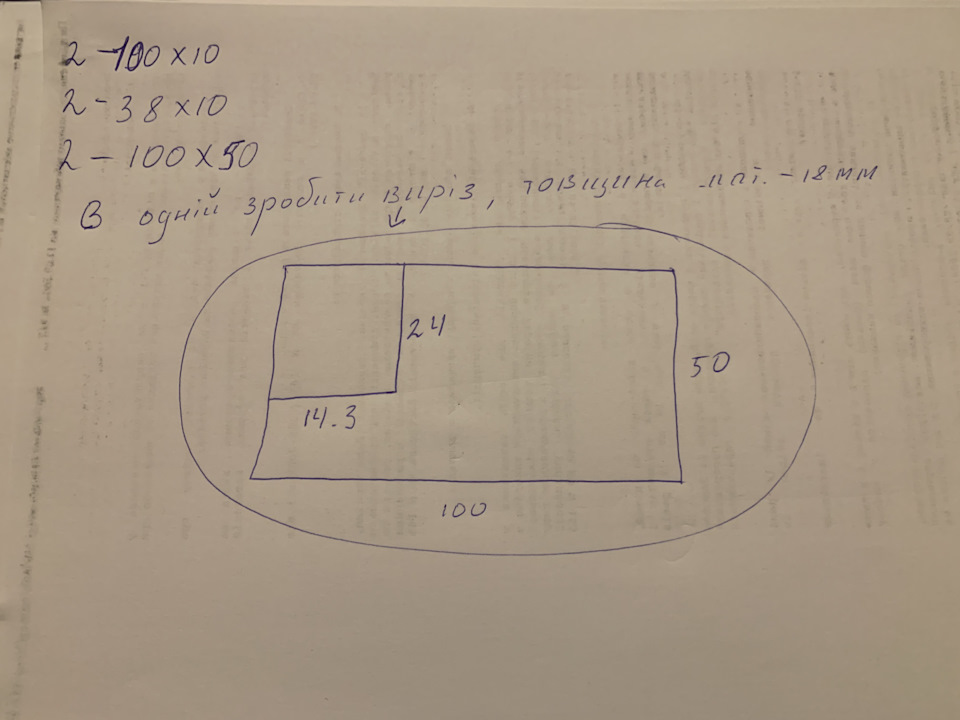 2 - 100 x 10
2 - 38 x 10
2 - 100 x 50
В одній зробити виріз, товщина мат. - 18 мм
24
50
14.3
100